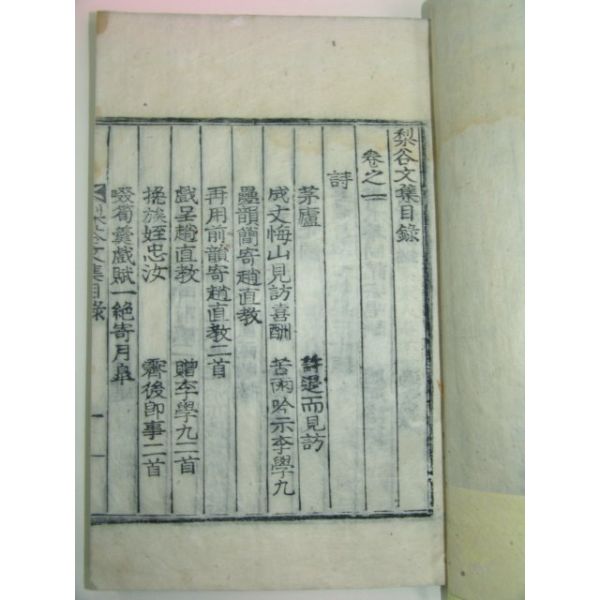 梨谷文集目錄
卷之一
詩
茅廬 許退而見訪
成丈悔山見訪喜酬 苦雨吟示李學九
疊韻簡寄趙直教
再用前韻寄趙直教二首
戲呈趙直教 贈李學九二首
挽族姪忠汝 霽後卽事二首
啜筍羹戲賦一絶寄月皐
梨谷文集目錄 一